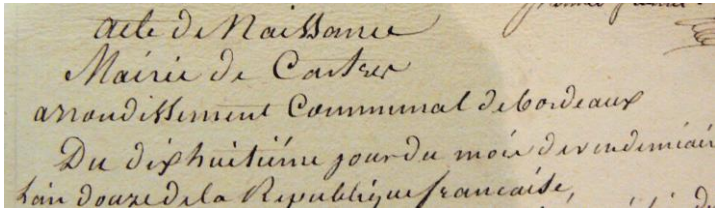 acte de Naissance
Mairie de Castres
arrondissement Communal de bordeaux
Du dixhuitiéme jour du mois de vendemiair
L'an douze de la Republique francaise,